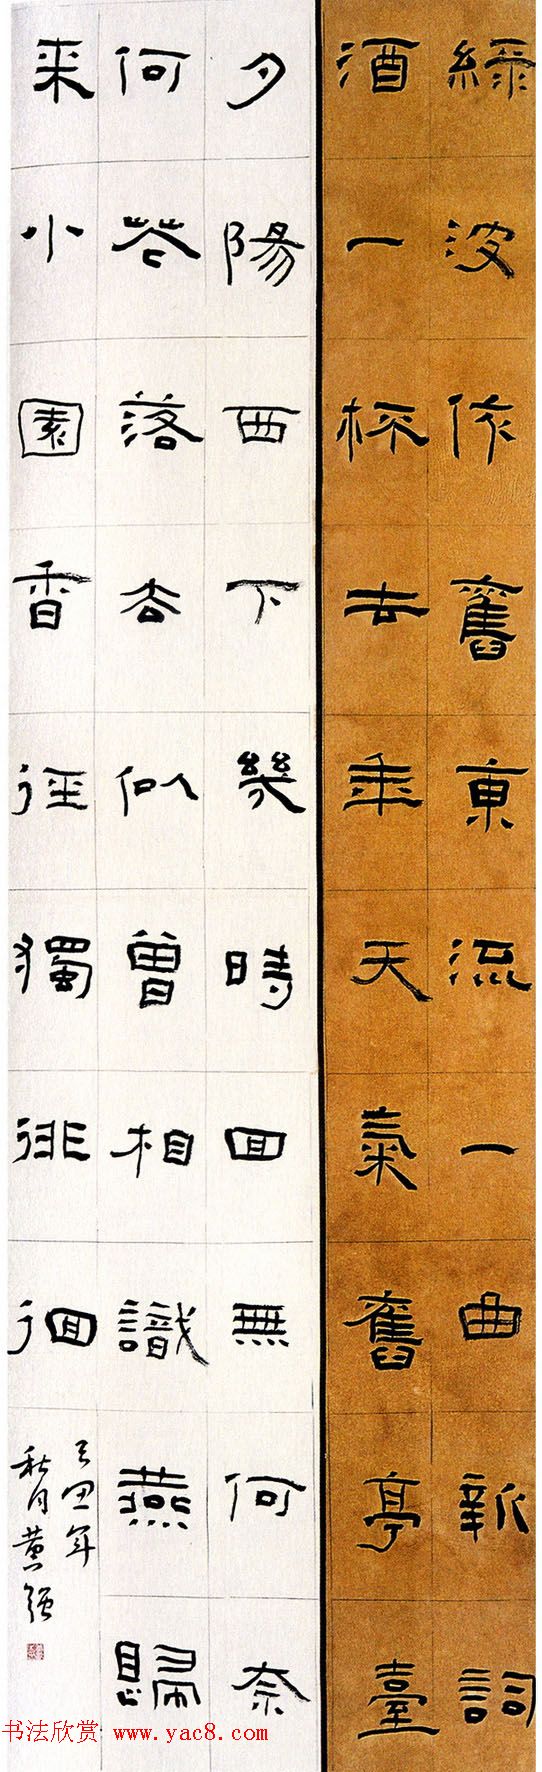 綠波依舊東流一曲新詞
酒一杯去年天氣舊亭臺
夕陽西下幾時回無何奈
何花落去似曾相識燕歸
来小園香徑獨徘徊
己丑年
秋月黃強
书法欣赏 www.yac8.com